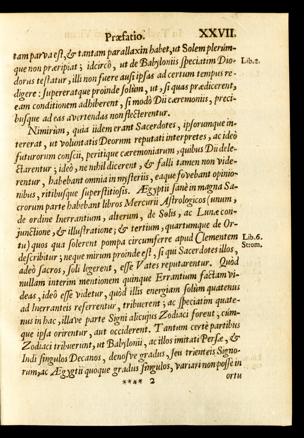 Præfatio. XXVII.
tam parva est, & tantam parallaxin habet, ut Solem plerum-
que non præripiat; idcircò, ut de Babyloniis speciatim Dio- Lib.2.
dorus testatur, illi non fuere ausi ipsas ad certum tempus re-
digere: supereratque proinde solùm, ut, si quas prædicerent,
eam conditionem adhiberent, si modò Dii cæremoniis, preci-
busque ad eas avertendas non flecterentur.
Nimirùm, quia iidem erant Sacerdotes, ipsorumque in-
tererat, ut voluntatis Deorum reputati interpretes, ac ideò
futurorum conscii, peritique cæremoniarum, quibus Dii dele-
ctarentur; ideò, ne nihil dicerent, & falli tamen non vide-
rentur, habebant omnia in mysteriis, eaque fovebant opinio-
nibus, ritibusque superstitiosis. Ægyptii sanè in magna Sa-
crorum parte habebant libros Mercurii Astrologicos (unum,
de ordine Inerrantium, alterum, de Solis, ac Lunæ con-
junctione, & illustratione; & tertium, quartumque de Or-
tu) quos qua solerent pompa circumferre apud Clementem Lib.6.
describitur; neque mirum proinde est, si qui Sacerdotes illos, Strom.
adeò sacros, soli legerent, esse Vates reputarentur. Quòd
nullam interim mentionem quinque Errantium factam vi-
deas, ideò esse videtur, quòd illis energiam solùm quatenus
ad Inerranteis referrentur, tribuerent; ac speciatim quate-
nus in hac, illave parte Signi alicujus Zodiaci forent; cùm-
que ipsa orirentur, aut occiderent. Tantum certè partibus
Zodiaci tribuerunt, ut Babylonii, ac illos imitati Persæ, &
Indi singulos Decanos, denosve gradus, seu trienteis Signo-
rum, ac Ægyptii quoque gradus singulos, variari non posse in
**** 2 ortu